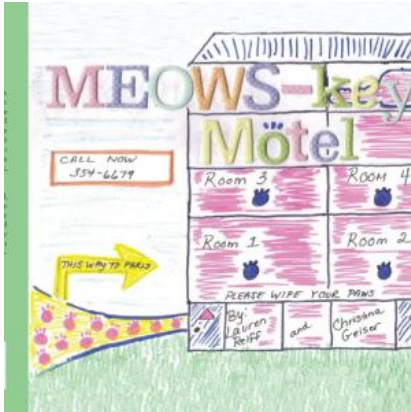 MEOWS-key
Motel
CALL NOW
354-6679
Room 3
ROOM 4
THIS WAY TO PARIS
Room 1
Room 2
PLEASE WIPE YOUR PAWS
By:
Lauren
Reiff
and
Christina
Geiser